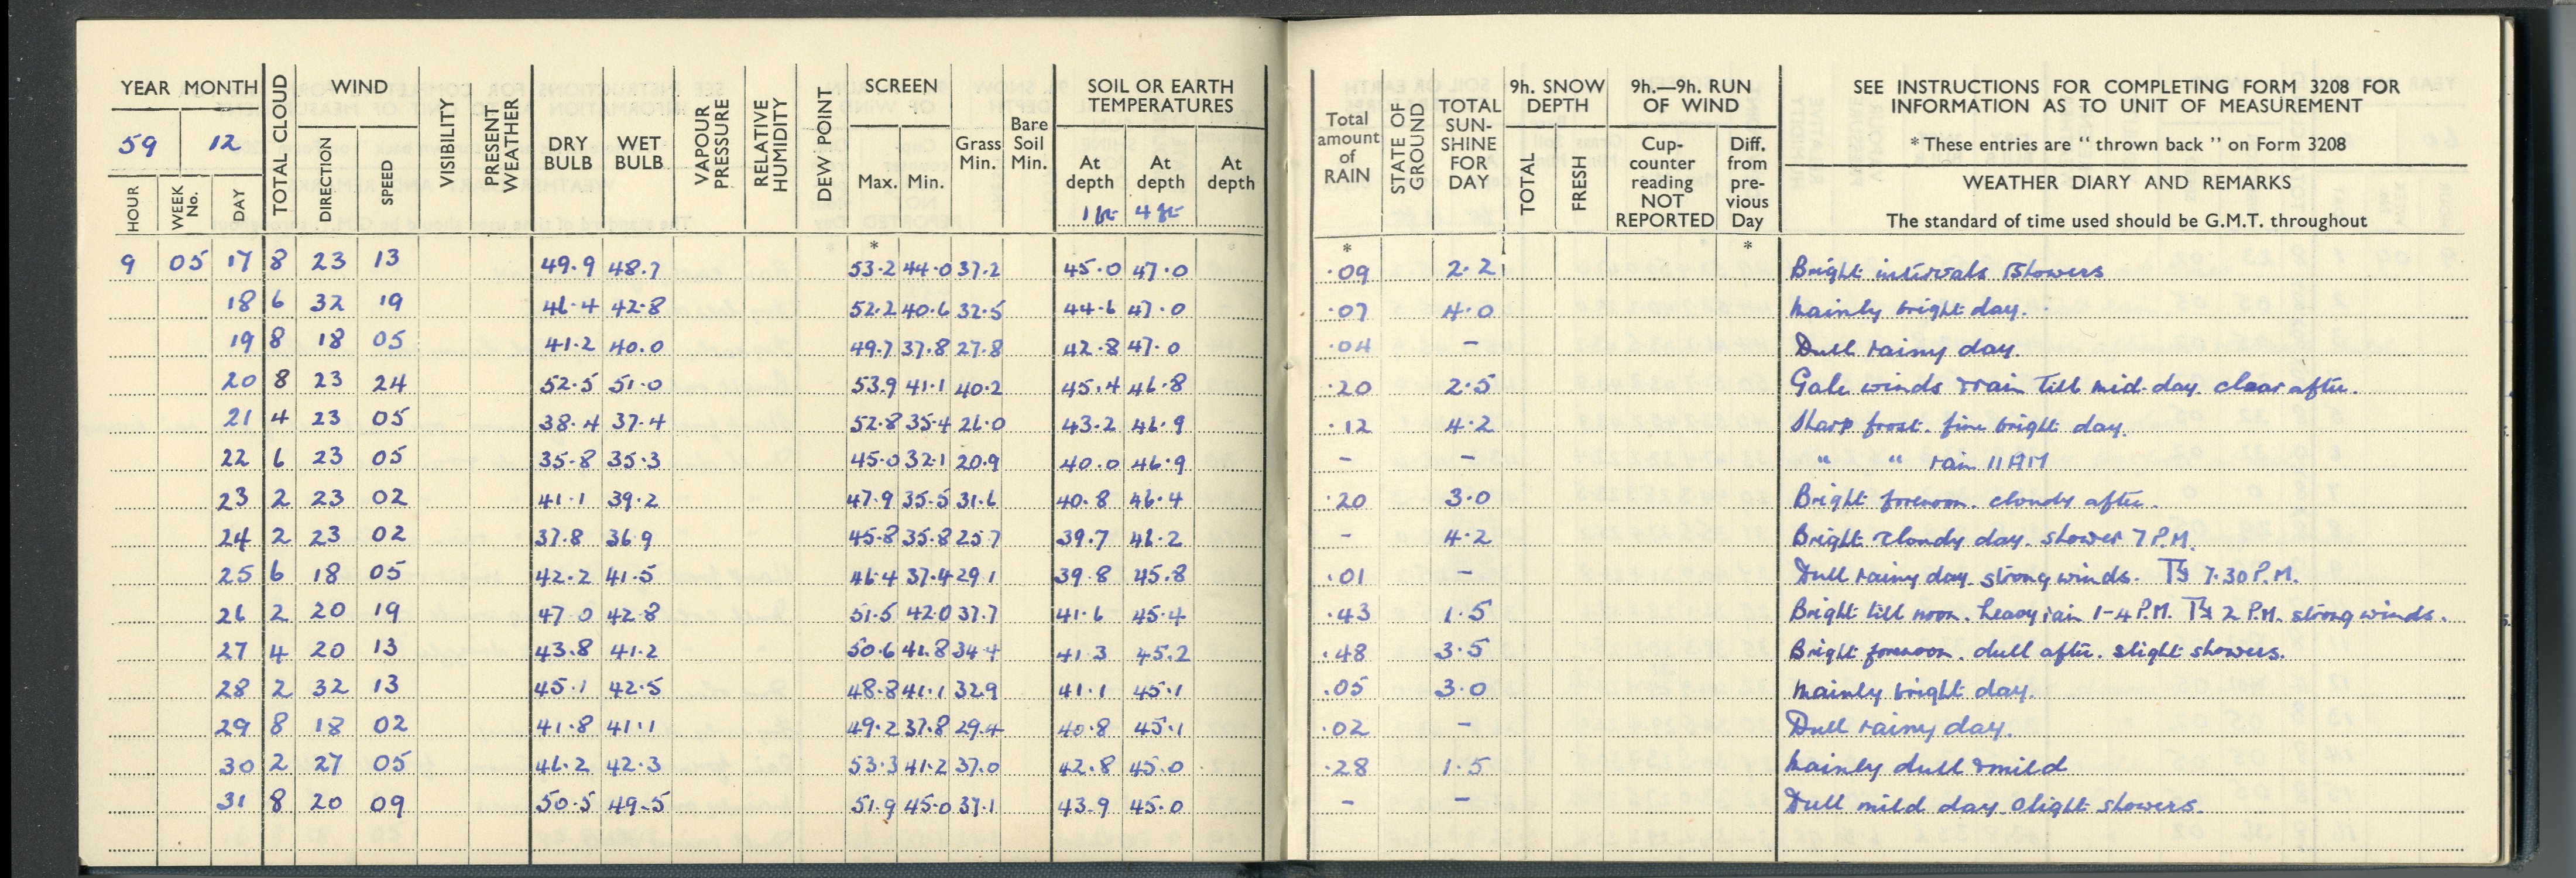 YEAR MONTH TOTAL CLOUD WIND VISIBILITY PRESENT WEATHER DRY BULB WET BULB VAPOUR PRESSURE RELATIVE HUMIDITY DEW POINT SCREEN Grass Min. Bare Soil Min. SOIL OR EARTH TEMPERATURES
59 12 DIRECTION SPEED Max. Min. At depth At depth At depth
HOUR WEEK No. DAY 1 ft 4 ft
Total amount of RAIN STATE OF GROUND TOTAL SUN-SHINE FOR DAY 9h. SNOW DEPTH 9h.—9h. RUN OF WIND SEE INSTRUCTIONS FOR COMPLETING FORM 3208 FOR
INFORMATION AS TO UNIT OF MEASUREMENT
TOTAL FRESH Cup-counter reading NOT REPORTED Diff. from pre-vious Day * These entries are "thrown back" on Form 3208
WEATHER DIARY AND REMARKS
The standard of time used should be G.M.T. throughout
* * *
9 05 17 8 23 13 49.9 48.7 53.2 44.0 37.2 45.0 47.0 .09 2.2 Bright intervals & showers
18 6 32 19 46.4 42.8 52.2 40.6 32.5 44.6 47.0 .07 4.0 Mainly bright day.
19 8 18 05 41.2 40.0 49.7 37.8 27.8 42.8 47.0 .04 - Dull rainy day.
20 8 23 24 52.5 51.0 53.9 41.1 40.2 45.4 46.8 .20 2.5 Gale winds & rain till mid-day clear after.
21 4 23 05 38.4 37.4 52.8 35.4 26.0 43.2 46.9 .12 4.2 Sharp frost. fine bright day.
22 6 23 05 35.8 35.3 45.0 32.1 20.9 40.0 46.9 - - " " rain 11 AM
23 2 23 02 41.1 39.2 47.9 35.5 31.6 40.8 46.4 .20 3.0 Bright forenoon. cloudy after.
24 2 23 02 37.8 36.9 45.8 35.8 25.7 39.7 46.2 - 4.2 Bright & cloudy day. shower 7 P.M.
25 6 18 05 42.2 41.5 46.4 37.4 29.1 39.8 45.8 .01 - Dull rainy day. strong winds. 7.30 P.M.
26 2 20 19 47.0 42.8 51.5 42.0 37.7 41.6 45.4 .43 1.5 Bright till noon. heavy rain 1-4 P.M. 2 P.M. strong winds.
27 4 20 13 43.8 41.2 50.6 41.8 34.4 41.3 45.2 .48 3.5 Bright forenoon. dull after. slight showers.
28 2 32 13 45.1 42.5 48.8 41.1 32.9 41.1 45.1 .05 3.0 Mainly bright day.
29 8 18 02 41.8 41.1 49.2 37.8 29.4 40.8 45.1 .02 - Dull rainy day.
30 2 27 05 46.2 42.3 53.3 41.2 37.0 42.8 45.0 .28 1.5 Mainly dull & mild
31 8 20 09 50.5 49.5 51.9 45.0 37.1 43.9 45.0 - - Dull mild day. Slight showers.